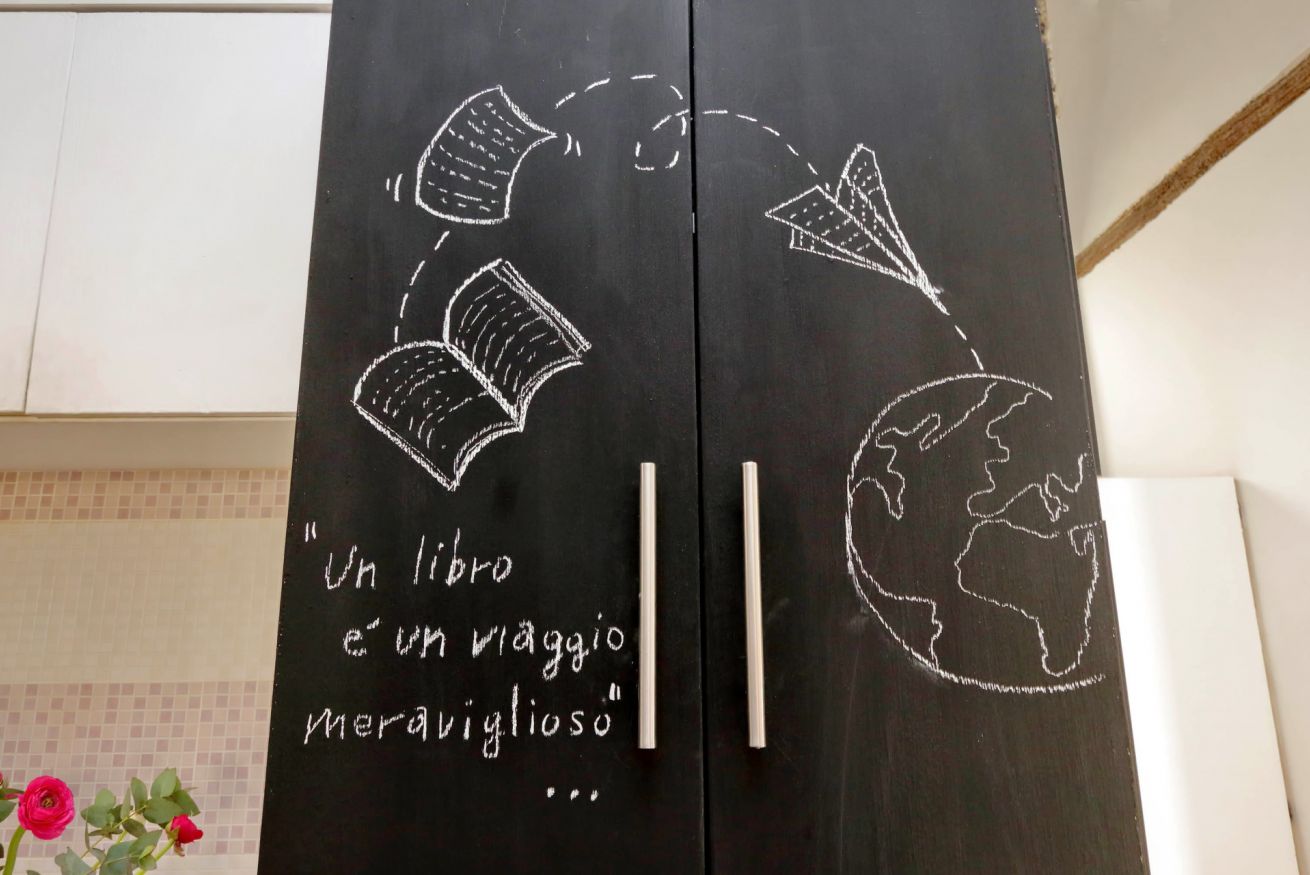 "Un libro
e' un viaggio
meraviglioso"
...